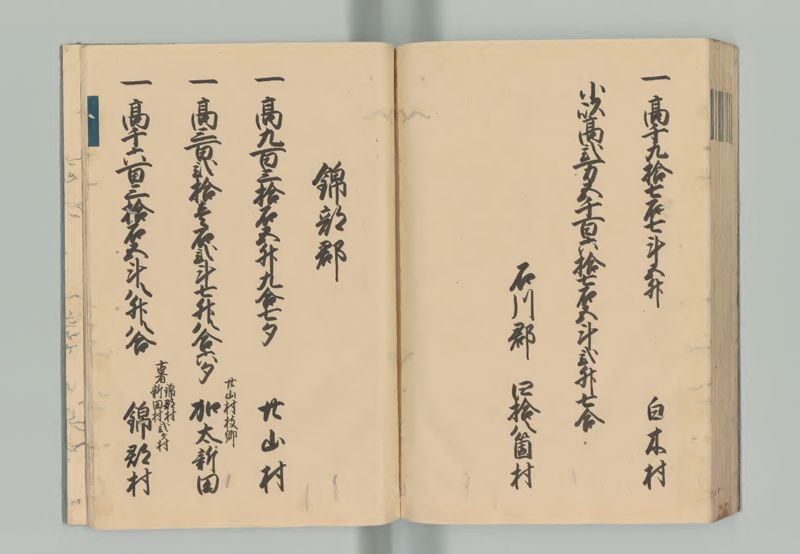 一 高千九拾七石七斗五升 白木村
小以高弐万五千百六拾七石五斗弐升七合
石川郡 四拾八箇村
錦部郡
一 高九百三拾石五升九合七夕 廿山村
一 高三百弐拾壱石弐斗七升八合六夕 廿山村枝郷 加太新田
一 高千六百三拾石五斗八升八合 古者 錦郡村 新田村 弐ヶ村 錦郡村